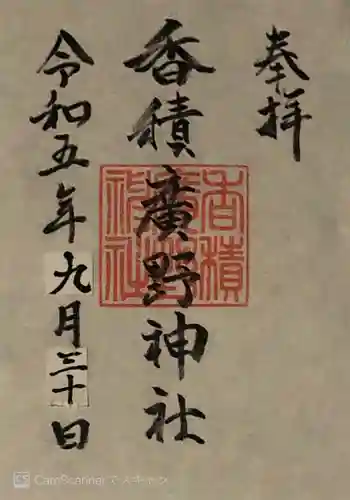 奉拝
香積廣野神社
令和五年九月三十日
香積廣野神社
CamScannerでスキャン